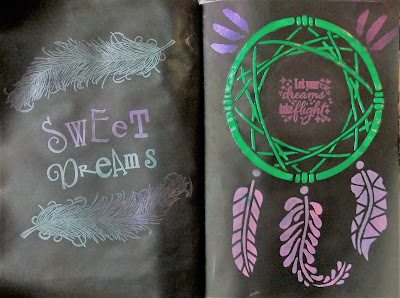 SWEET
DREAMS
Let your
dreams
take
flight